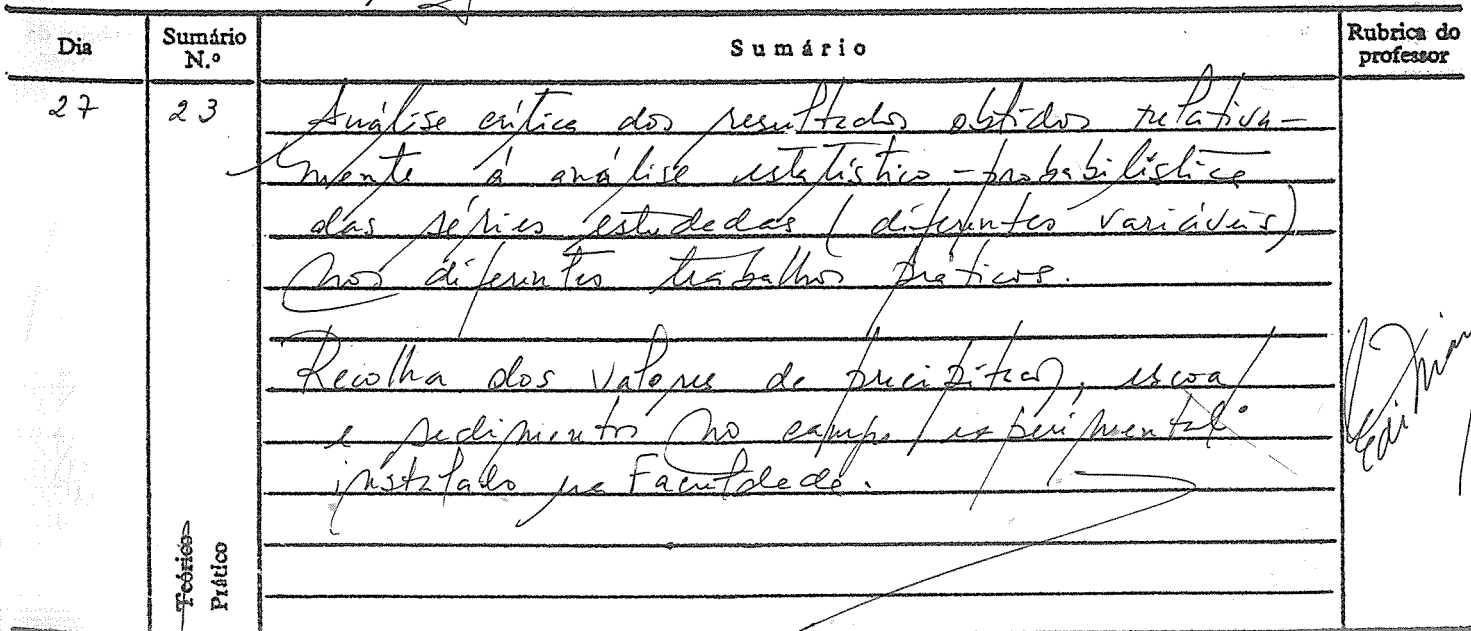 Dia
Sumário N.º
Sumário
Rubrica do professor
27
23
Análise crítica dos resultados obtidos relativa-
mente à análise estatístico-probabilística
das séries estudadas (diferentes variáveis)
nos diferentes trabalhos práticos.
Recolha dos valores de precipitação, escoa
e sedimentos no campo experimental
instalado na Faculdade.
Teórico-
Prático